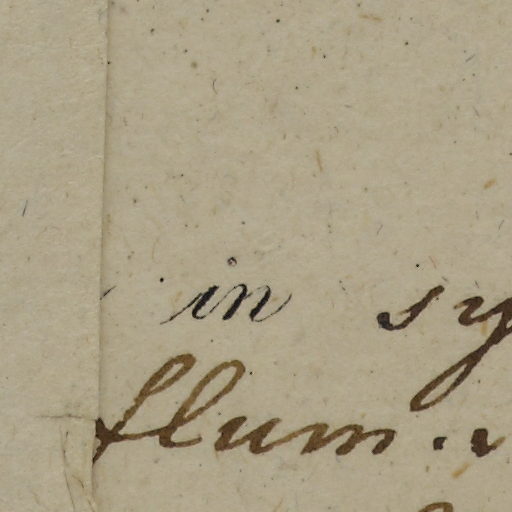 in sy
flum.